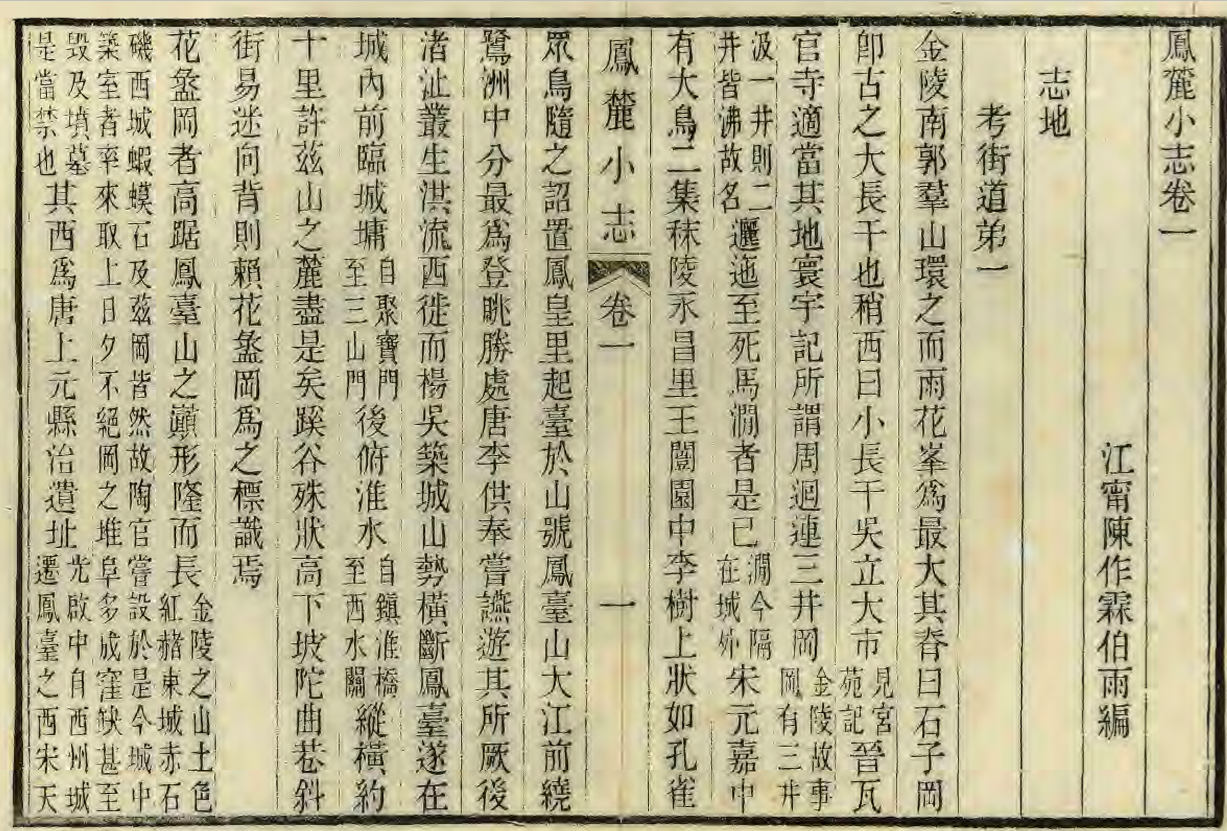 鳳麓小志卷一
江甯陳作霖伯雨編
志地
考街道弟一
金陵南郭羣山環之而雨花峯爲最大其脊曰石子岡
卽古之大長干也稍西曰小長干吳立大市見宮苑記晉瓦
官寺適當其地寰宇記所謂周迴連三井岡金陵故事岡有三井
汲一井則二井皆沸故名邐迤至死馬澗者是已澗今隔在城外宋元嘉中
有大鳥二集秣陵永昌里王闓園中李樹上狀如孔雀
鳳麓小志 卷一 一
眾鳥隨之詔置鳳皇里起臺於山號鳳臺山大江前繞
鷺洲中分最爲登眺勝處唐李供奉嘗讌遊其所厥後
渚沚叢生洪流西徙而楊吳築城山勢橫斷鳳臺遂在
城內前臨城墉自聚寶門至三山門後俯淮水自鎮淮橋至西水關縱橫約
十里許茲山之麓盡是矣蹊谷殊狀高下坡陀曲巷斜
街易迷向背則賴花盝岡爲之標識焉
花盝岡者高踞鳳臺山之巔形隆而長金陵之山土色紅赭東城赤石
磯西城蝦蟆石及茲岡皆然故陶官嘗設於是今城中築室者率來取上日夕不絕岡之堆阜多成窪缺甚至
毀及墳墓是當禁也其西爲唐上元縣治遺址光啟中自西州城遷鳳臺之西宋天